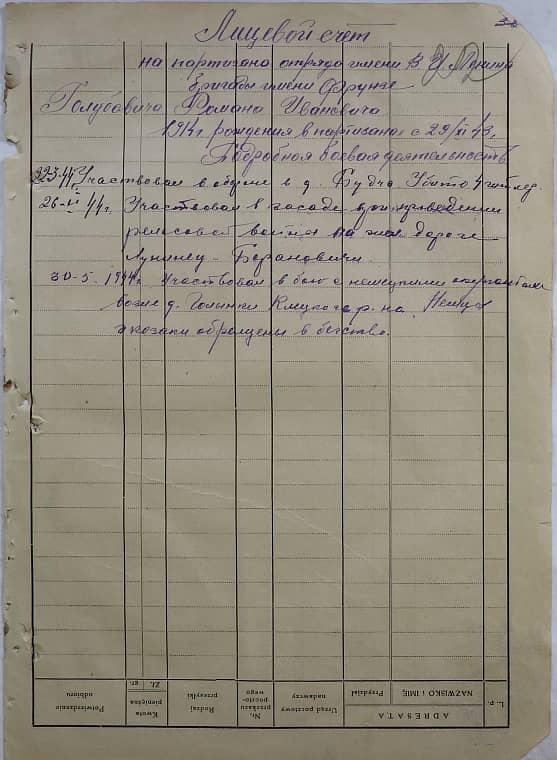 Лицевой счёт
на партизана отряда имени В И Ленина
Бригады имени Фрунзе
Голубовича Романа Ивановича
1914г рождения в партизанах с 29/XI 43г.
Подробная боевая деятельность
Участвовал в в д. Будча Убито 4 гитлер.
26-II 44г. Участвовал в засаде при проведении
рельсовой войны на жел дороге
Лунинец - Барановичи.
30-5. 1944г. Участвовал в бою с немецкими
возле д. Голынки Клецкого р-на. Немцы
и козаки обращены в бегство.
L. p.
ADRESATA
NAZWISKO I IMIĘ
Przydział
Urząd pocztowy nadawczy
Nr. przekazu poczto- wego
Rodzaj przesyłki
Kwota pieniężna
Zł. gr.
Potwierdzenie odbioru